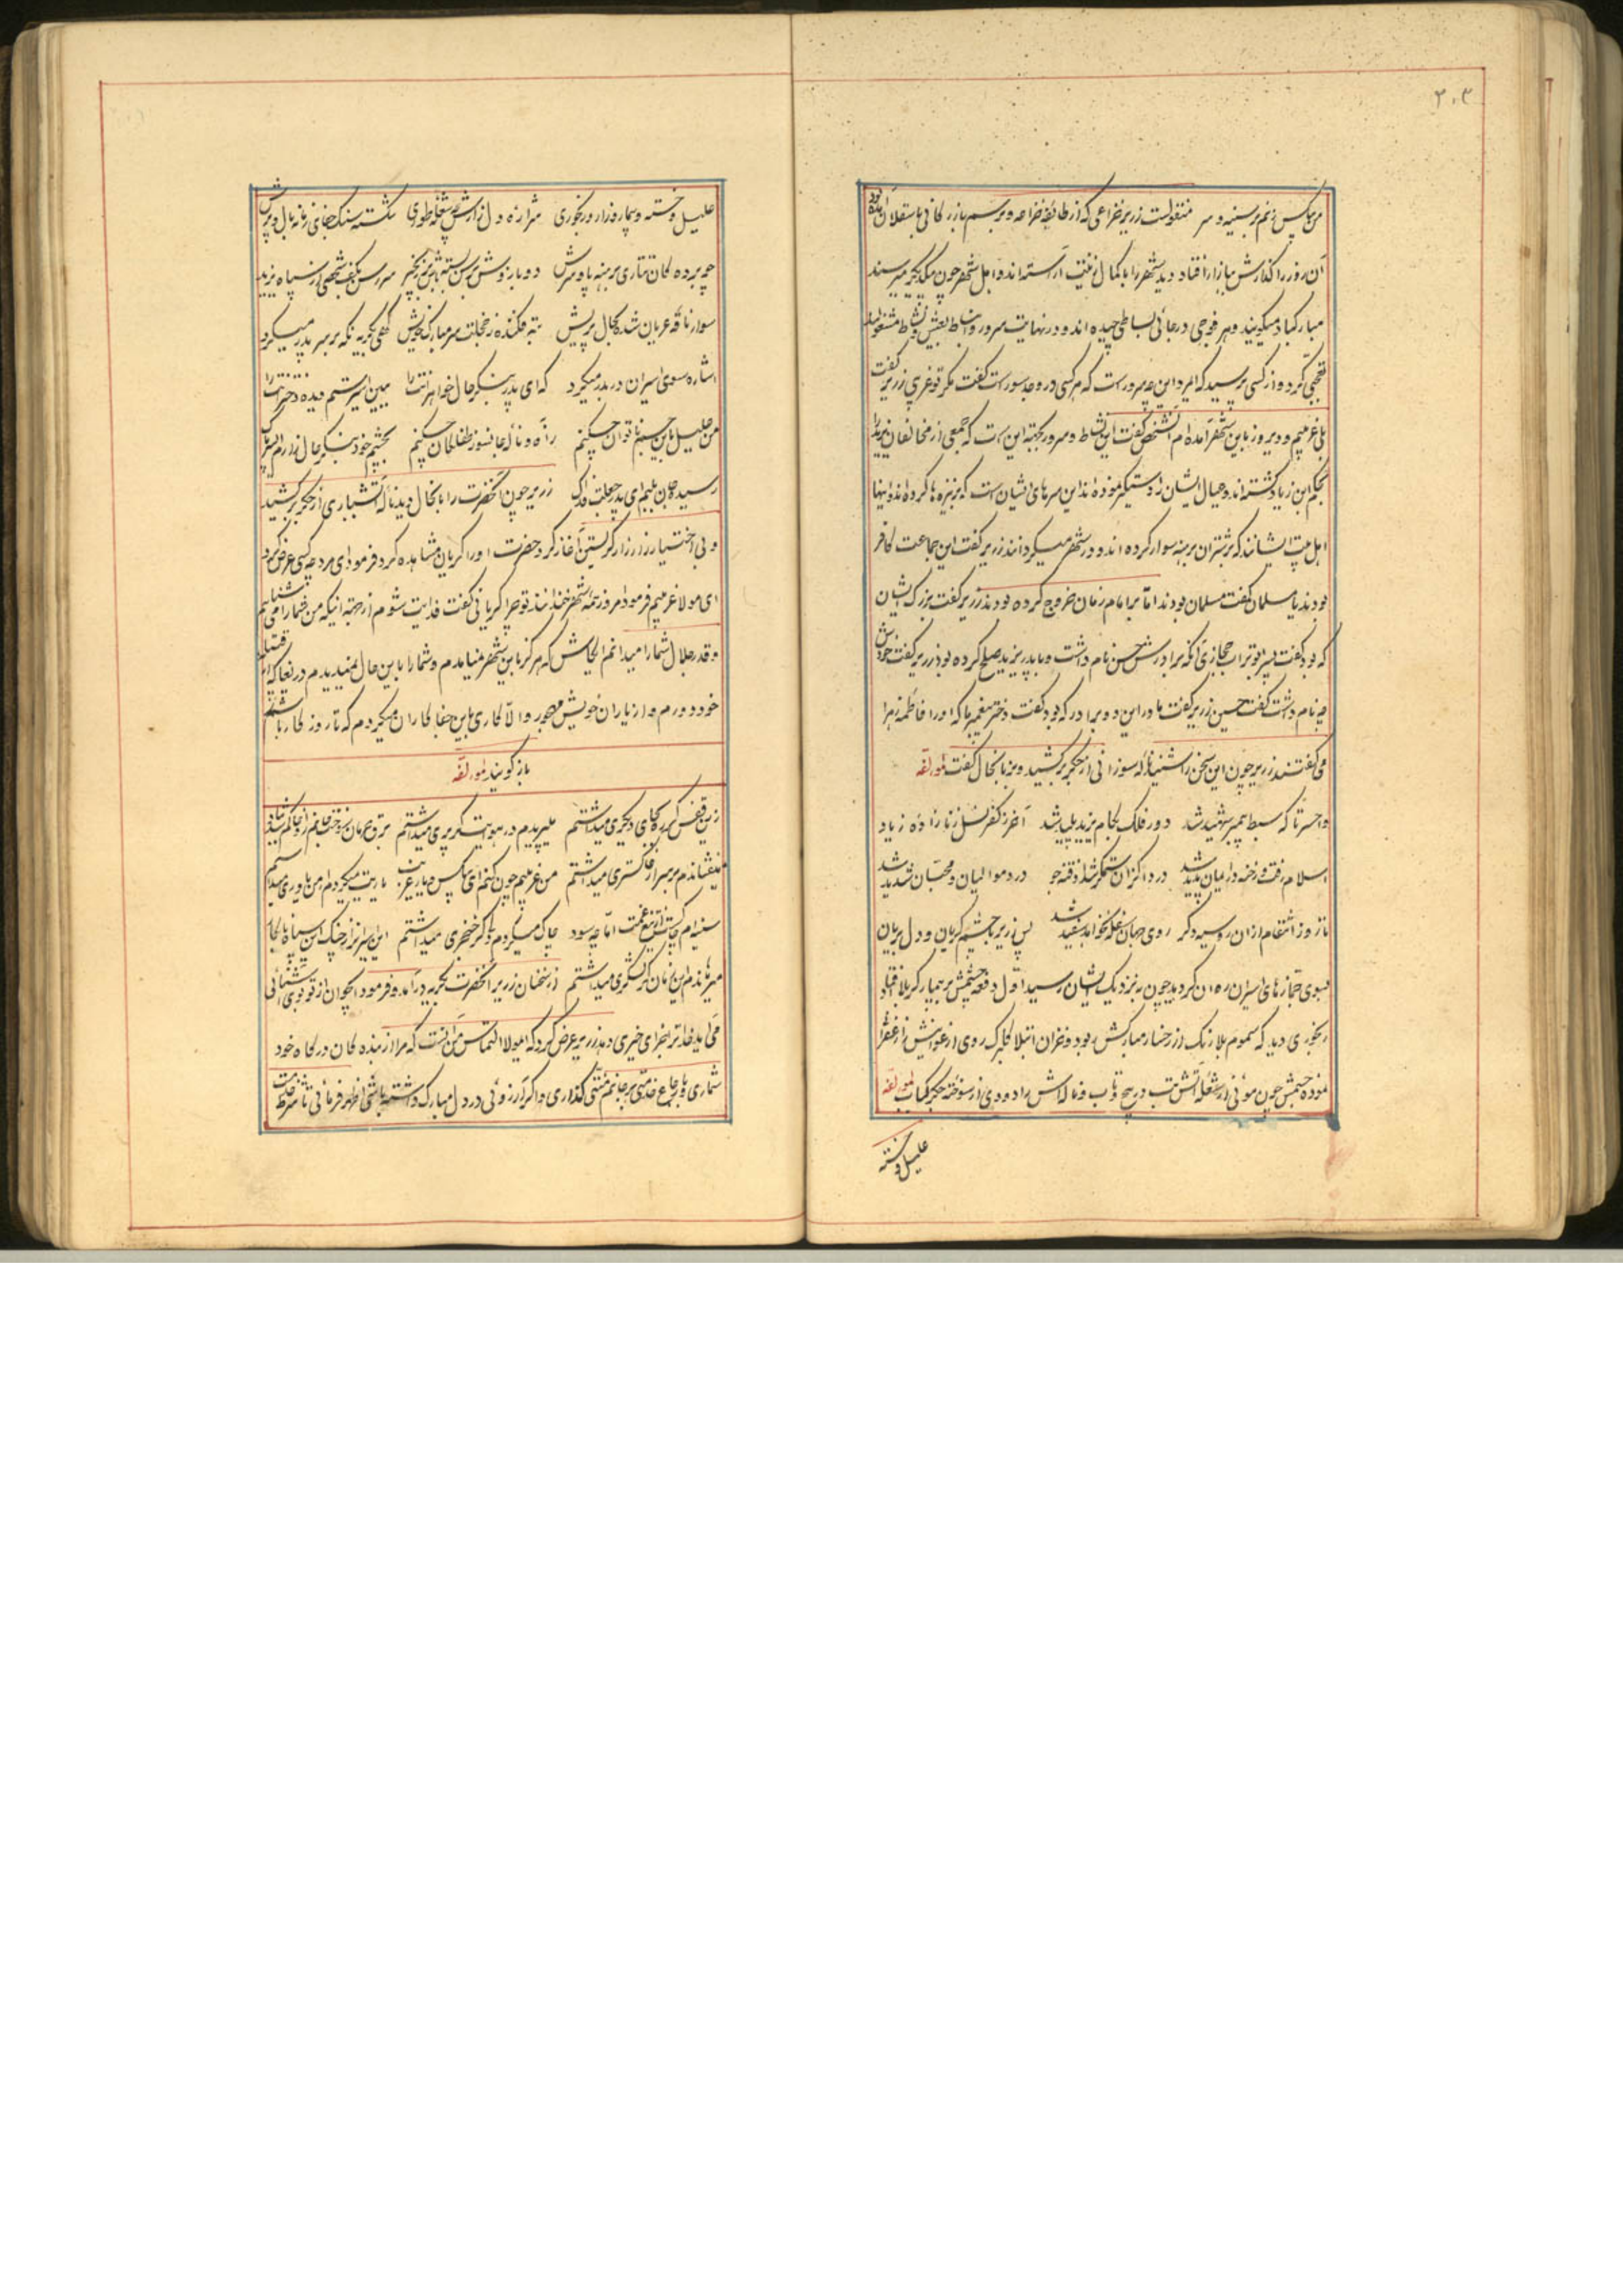 ۲۰۳
من بیکس زنم بر سینه و سر منقولست زریر خزاعی که از طایفه خزاعه و برسم بازرگانی بعسقلان آمده بود
آن روز را گذارش ببازار افتاد دید شهر را بکمال زینت آراسته اند و اهل شهر چون بیکدیگر میرسند
مبارکباد میگویند و هر فوجی در جائی بساطی چیده اند و در نهایت سرور و انبساط بعیش و نشاط مشغولند
تعجب کرد و از کسی پرسید که ایمرد این چه سرور است که هر کسی در وجد و سور است گفت مگر تو غریبی زریر گفت
بلی غریبم و دیروز باین شهر آمده ام آنشخص گفت این نشاط و سرور بجهته این است که جمعی از مخالفان یزید را
بحکم ابن زیاد کشته اند و عیال ایشان را دستگیر نموده اند این سرهای ایشان است که بر نیزه ها کرده اند و اینها
اهل بیت ایشانند که بر شتران برهنه سوار کرده اند و در شهر میگردانند زریر گفت این جماعت کافر
بودند یا مسلمان گفت مسلمان بودند اما بر امام زمان خروج کرده بودند زریر گفت بزرگ ایشان
که بود گفت پسر بوتراب حجازی آنکه برادرش حسن نام داشت و با پدر یزید صلح کرده بود زریر گفت خودش
چه نام داشت گفت حسین زریر گفت مادر این دو برادر که بود گفت دختر پیغمبر ما که او را فاطمه زهرا
می گفتند زریر چون این سخن را شنید ناله سوزانی از جگر برکشید و بزبانحال گفت لمؤلفه
واحسرتا که سبط پیمبر شهید شد دور فلک بکام یزید پلید شد آخر ز کفر نسل زنا زاده زیاد
اسلام رفت و رخنه در ایمان پدید شد دردا کزان ستمگر شد فتنه جو درد موالیان و محبان شدید شد
تا روز انتقام ازان رو سیه دگر روی جهان غمکده نخواهد سفید شد پس زریر با چشم گریان و دل بریان
بسوی جمازهای اسیران روان گردید چون بنزدیک ایشان رسید اول دفعه چشمش بر بیمار کربلا افتاد
رنجوری دید که سموم بلا رنگ از رخسار مبارکش ربوده و خزان ابتلا گلبرگ روی ارغوانیش زعفرانی
نموده جسمش چون موئی از شعله آتش تب در پیچ و تاب و ناله اش را دودی از سوخته جگر کباب لمؤلفه
علیل و خسته
علیل و خسته و بیمار و زار و رنجوری شراره دل زارش چو شعله طوری شکسته سنگ جفای زمانه بال و پرش
چو برده گان تتاری برهنه پا و سرش دو بازوش برسن بسته پا بزنجیر سر رسن بکف شخصی از سپاه یزید
سوار ناقه عریان شده بحال پریش بته فکنده ز خجلت سر مبارک خویش گهی بگریه نگه بر سر پدر میکرد
اشاره سوی اسیران در بدر میکرد که ای پدر بنگر حال خواهرانت را ببین اسیر ستم دیده دخترانت را
من علیل باین جسم ناتوان چکنم ز آه و ناله جانسوز طفلکان چکنم بچشم خود بنگر حال زارم ای بابا
رسید جان بلبم ای پدر بجلت فداک زریر چون آنحضرت را بانحال دید ناله آتشباری از جگر برکشید
و بی اختیار زار زار گریستن آغاز کرد حضرت او را گریان مشاهده کرد فرمود ای مرد چه کسی عرض کرد
ای مولا غریبم فرمود امروز همه شهر خندانند تو چرا گریانی گفت فدایت شوم از جهته اینکه من شما را می شناسم
و قدر جلال شما را میدانم ایکاش که هرگز باین شهر نمیامدم و شما را باین حال نمیدیدم دریغا که از قبیله
خود دورم و از یاران خویش مهجور والا کاری باین جفا کاران میکردم که تا روز کار باشد
باز گویند لمؤلفه
زین قفس گر ره بجای دیگری میداشتم میپریدم در هوایت گر پری میداشتم
من غریبم چون کنم ای بیکس و یار غریب یاریت میکردم ار من یاوری میداشتم
سینه ام چاکست از تیغ غمت اما چه سود چاک میکردم اگر خنجری میداشتم
میرهاندم این زمان گر لشکری میداشتم از سخنان زریر آنحضرت بگریه درآمد و فرمود ایجوان از تو بوی آشنائی
می آید خدا ترا جزای خیری دهد زریر عرض کرد که ایمولا التماس من آنست که مرا از بنده گان درگاه خود
شماری و بارجاع خدمتی بر جانم منتی گذاری و اگر آرزوئی در دل مبارک داشته باشی اظهار فرمائی تا شرط خدمت